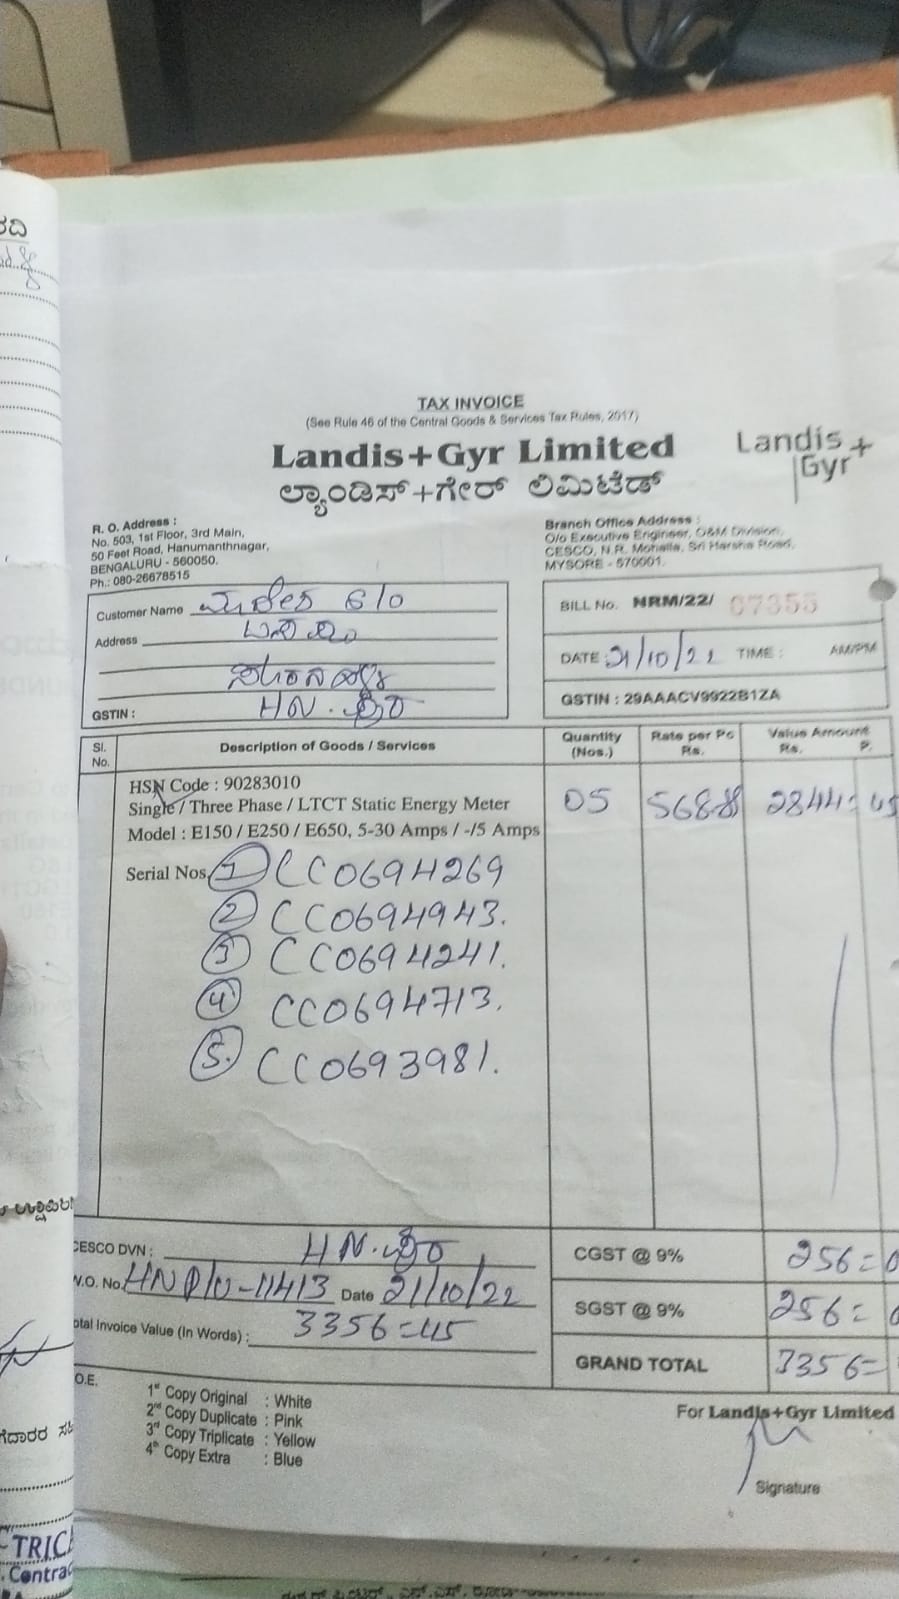 TAX INVOICE
(See Rule 46 of the Central Goods & Services Tax Rules, 2017)
Landis+Gyr Limited
Landis+
Gyr
ಲ್ಯಾಂಡಿಸ್+ಗೇರ್ ಲಿಮಿಟೆಡ್
R. O. Address :
No. 503, 1st Floor, 3rd Main,
50 Feet Road, Hanumanthnagar,
BENGALURU - 560050.
Ph.: 080-26678515
Branch Office Address :
O/o Executive Engineer, O&M Division,
CESCO, N.R. Mohalla, Sri Harsha Road,
MYSORE - 570001.
Customer Name
Address
GSTIN :
BILL No. NRM/22/ 07355
DATE : 21/10/22 TIME : AM/PM
GSTIN : 29AAACV9922B1ZA
Sl. No. Description of Goods / Services Quantity (Nos.) Rate per Pc Rs. Value Amount Rs. P.
HSN Code : 90283010
Single / Three Phase / LTCT Static Energy Meter 05 568.8 2844=45
Model : E150 / E250 / E650, 5-30 Amps / -/5 Amps
Serial Nos. 1 CC0694269
2 CC0694943.
3 CC0694241.
4 CC0694713.
5. CC0693981.
CESCO DVN :
W.O. No. HNP/U-11413 Date 21/10/22
Total Invoice Value (In Words) : 3356=45
CGST @ 9% 256=0
SGST @ 9% 256=
GRAND TOTAL 3356=
O.E.
1st Copy Original : White
2nd Copy Duplicate : Pink
3rd Copy Triplicate : Yellow
4th Copy Extra : Blue
For Landis+Gyr Limited
Signature
TRICA
Contrac